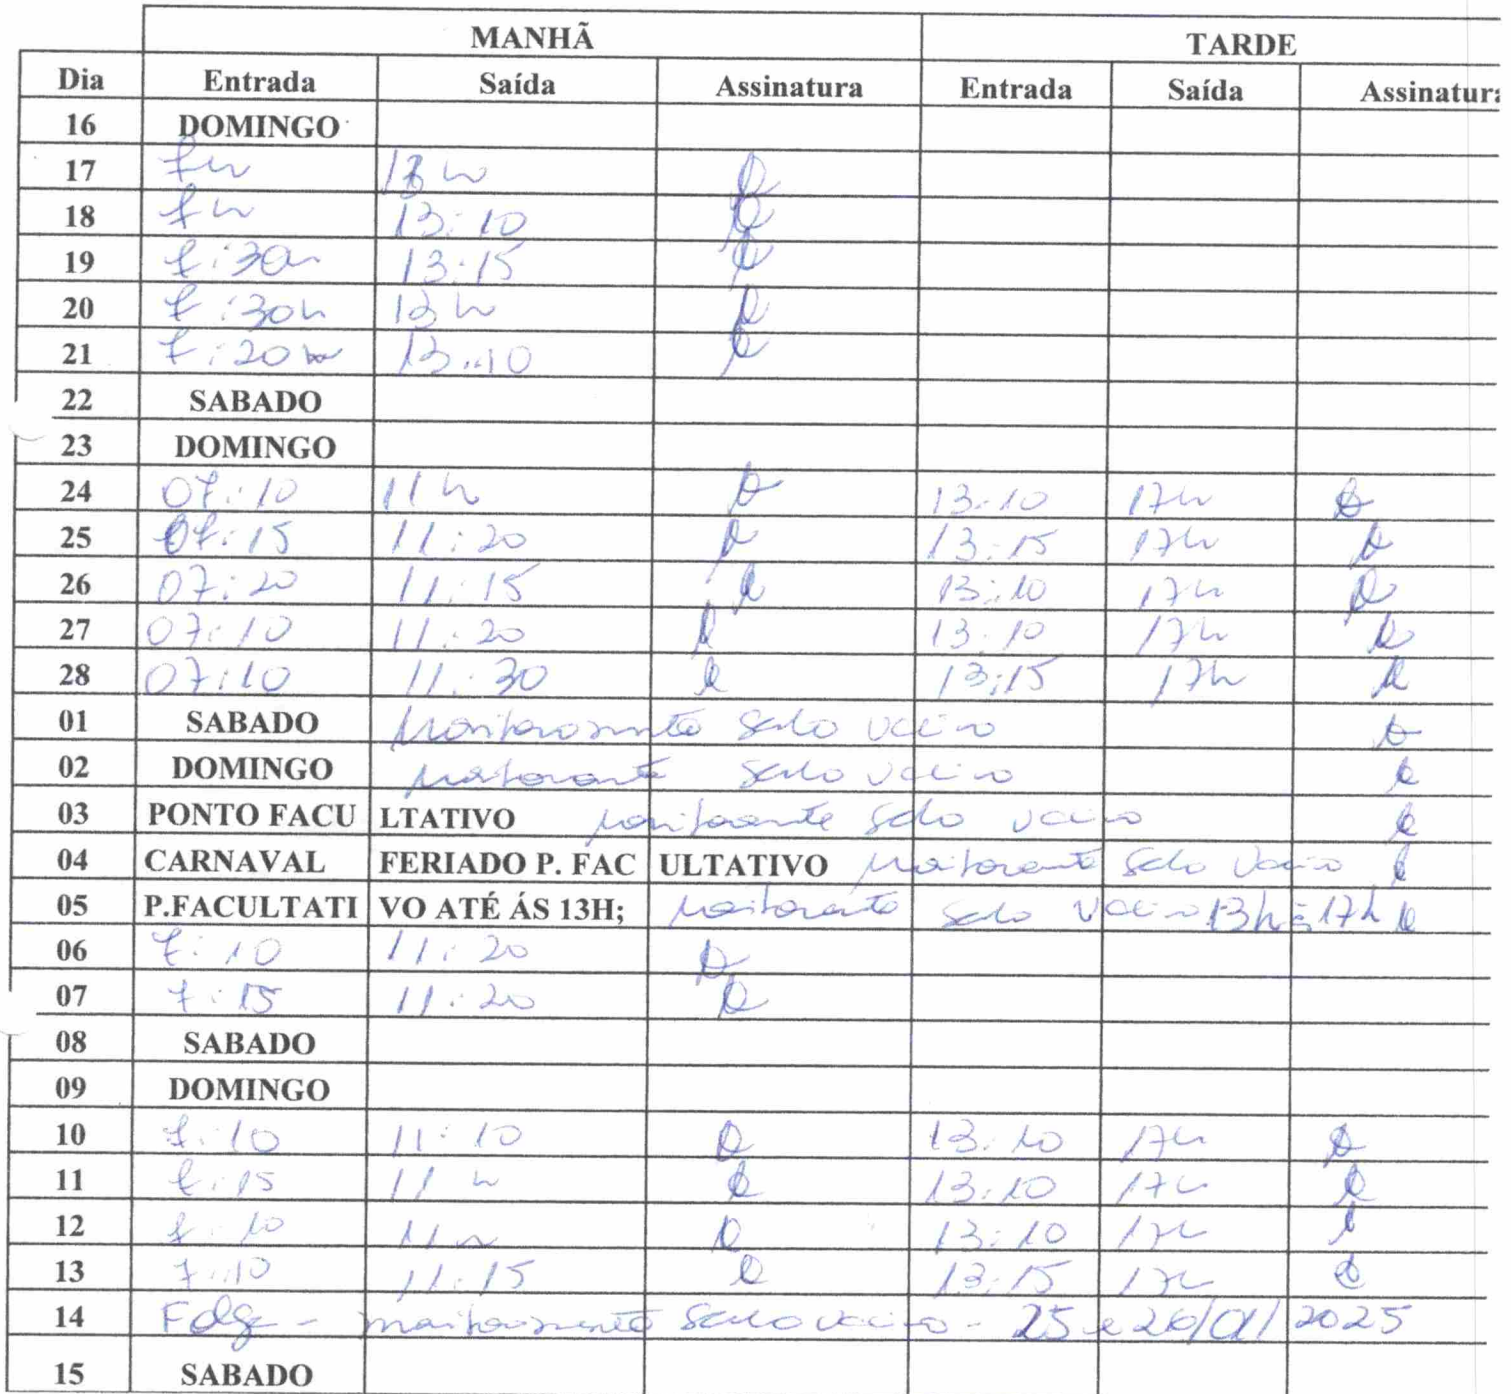 MANHÃ TARDE
Dia Entrada Saída Assinatura Entrada Saída Assinatura
16 DOMINGO
17 7h 13h
18 7h 13:10
19 7:30h 13:15
20 7:30h 13h
21 7:20h 13:10
22 SABADO
23 DOMINGO
24 07:10 11h 13:10 17h
25 07:15 11:20 13:15 17h
26 07:20 11:15 13:10 17h
27 07:10 11:20 13:10 17h
28 07:10 11:30 13:15 17h
01 SABADO Monitoramento
02 DOMINGO Monitoramento
03 PONTO FACULTATIVO Monitoramento
04 CARNAVAL FERIADO P. FACULTATIVO Monitoramento
05 P.FACULTATIVO ATÉ ÁS 13H; Monitoramento 13h às 17h
06 7:10 11:20
07 7:15 11:20
08 SABADO
09 DOMINGO
10 7:10 11:10 13:10 17h
11 7:15 11h 13:10 17h
12 7:10 11h 13:10 17h
13 7:10 11:15 13:15 17h
14 Folga - monitoramento - 25 e 26/01/2025
15 SABADO